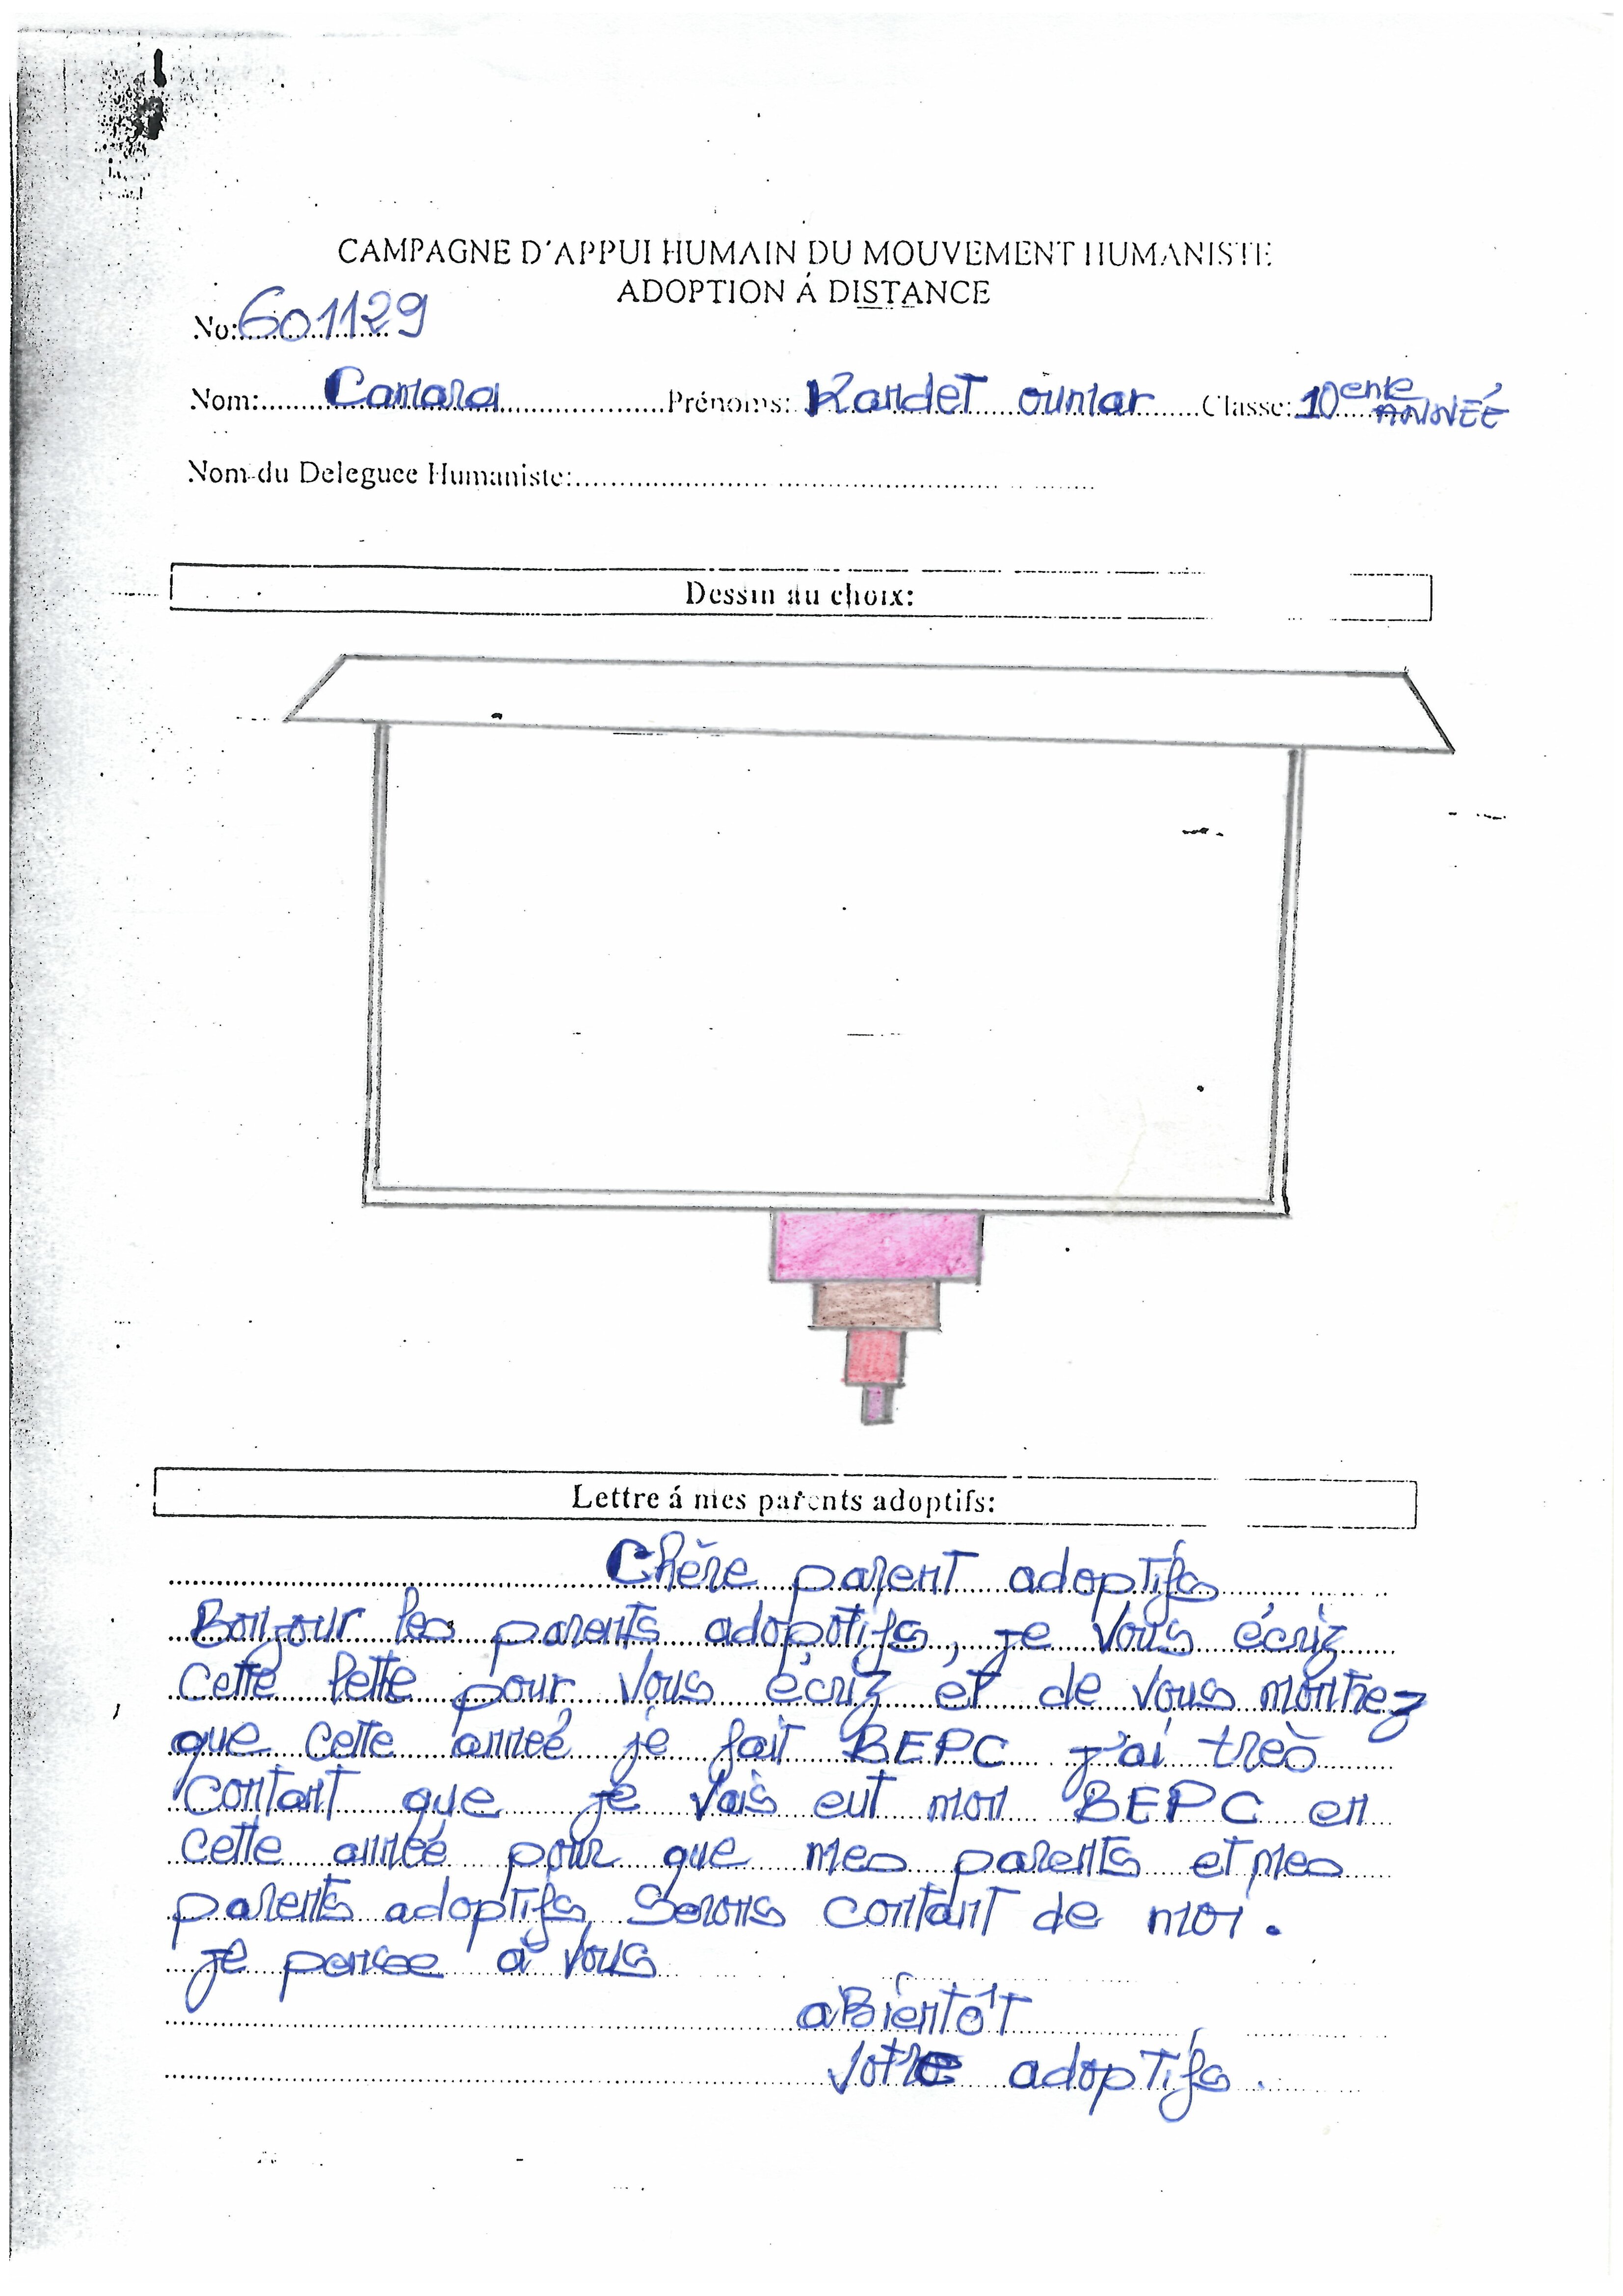 CAMPAGNE D'APPUI HUMAIN DU MOUVEMENT HUMANISTE
ADOPTION Á DISTANCE
No: 601129
Nom: Camara Prénoms: Kandet oumar Classe: 10eme ANNEÉ
Nom du Deleguee Humaniste:
Dessin au choix:
Lettre á mes parents adoptifs:
Chère parent adoptifs
Bonjour les parents adopotifs, je vous écriz
cette lette pour vous écriz et de vous montrez
que cette anneé je fait BEPC j'ai très
contant que je vais eut mon BEPC en
cette anneé pour que mes parents et mes
parents adoptifs Serons contant de moi.
je pensee à vous
aBientôt
votre adoptifs.